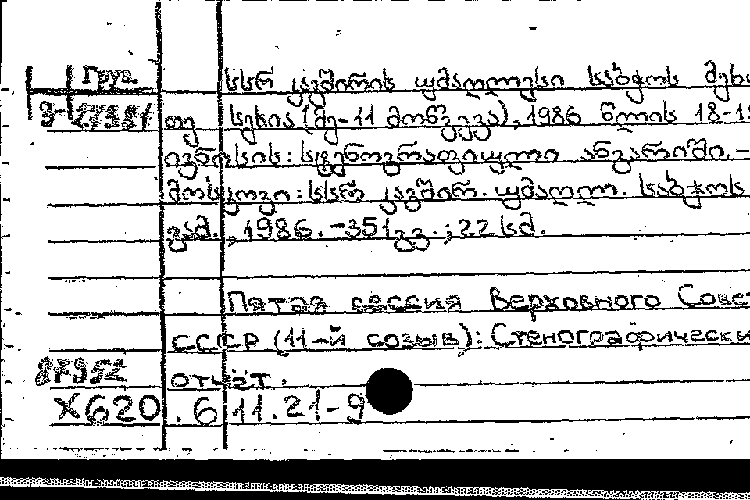 Груз.
სსრ კავშირის უმაღლესი საბჭოს მეხ
თე სესია (მე-11 მოწვევა), 1986 წლის 18-1
ივნისის: სტენოგრაფიული ანგარიში. -
მოსკოვი: სსრ კავშირ. უმაღლ. საბჭოს
გამ., 1986. -351 გვ.; 22 სმ.
Пятая сессия Верховного Сове
СССР (11-й созыв): Стенографически
87952
отчет.
X620.6 11.21-9